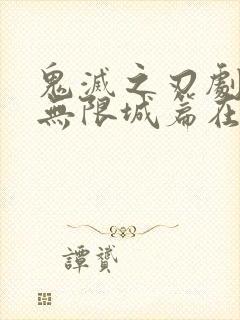 鬼滅之刃劇
無限城篇在
譚贇